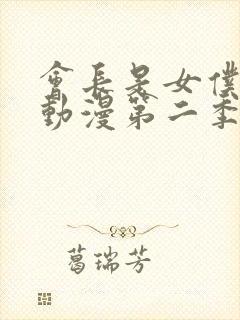 會長是女僕
動漫第二季
葛瑞芳